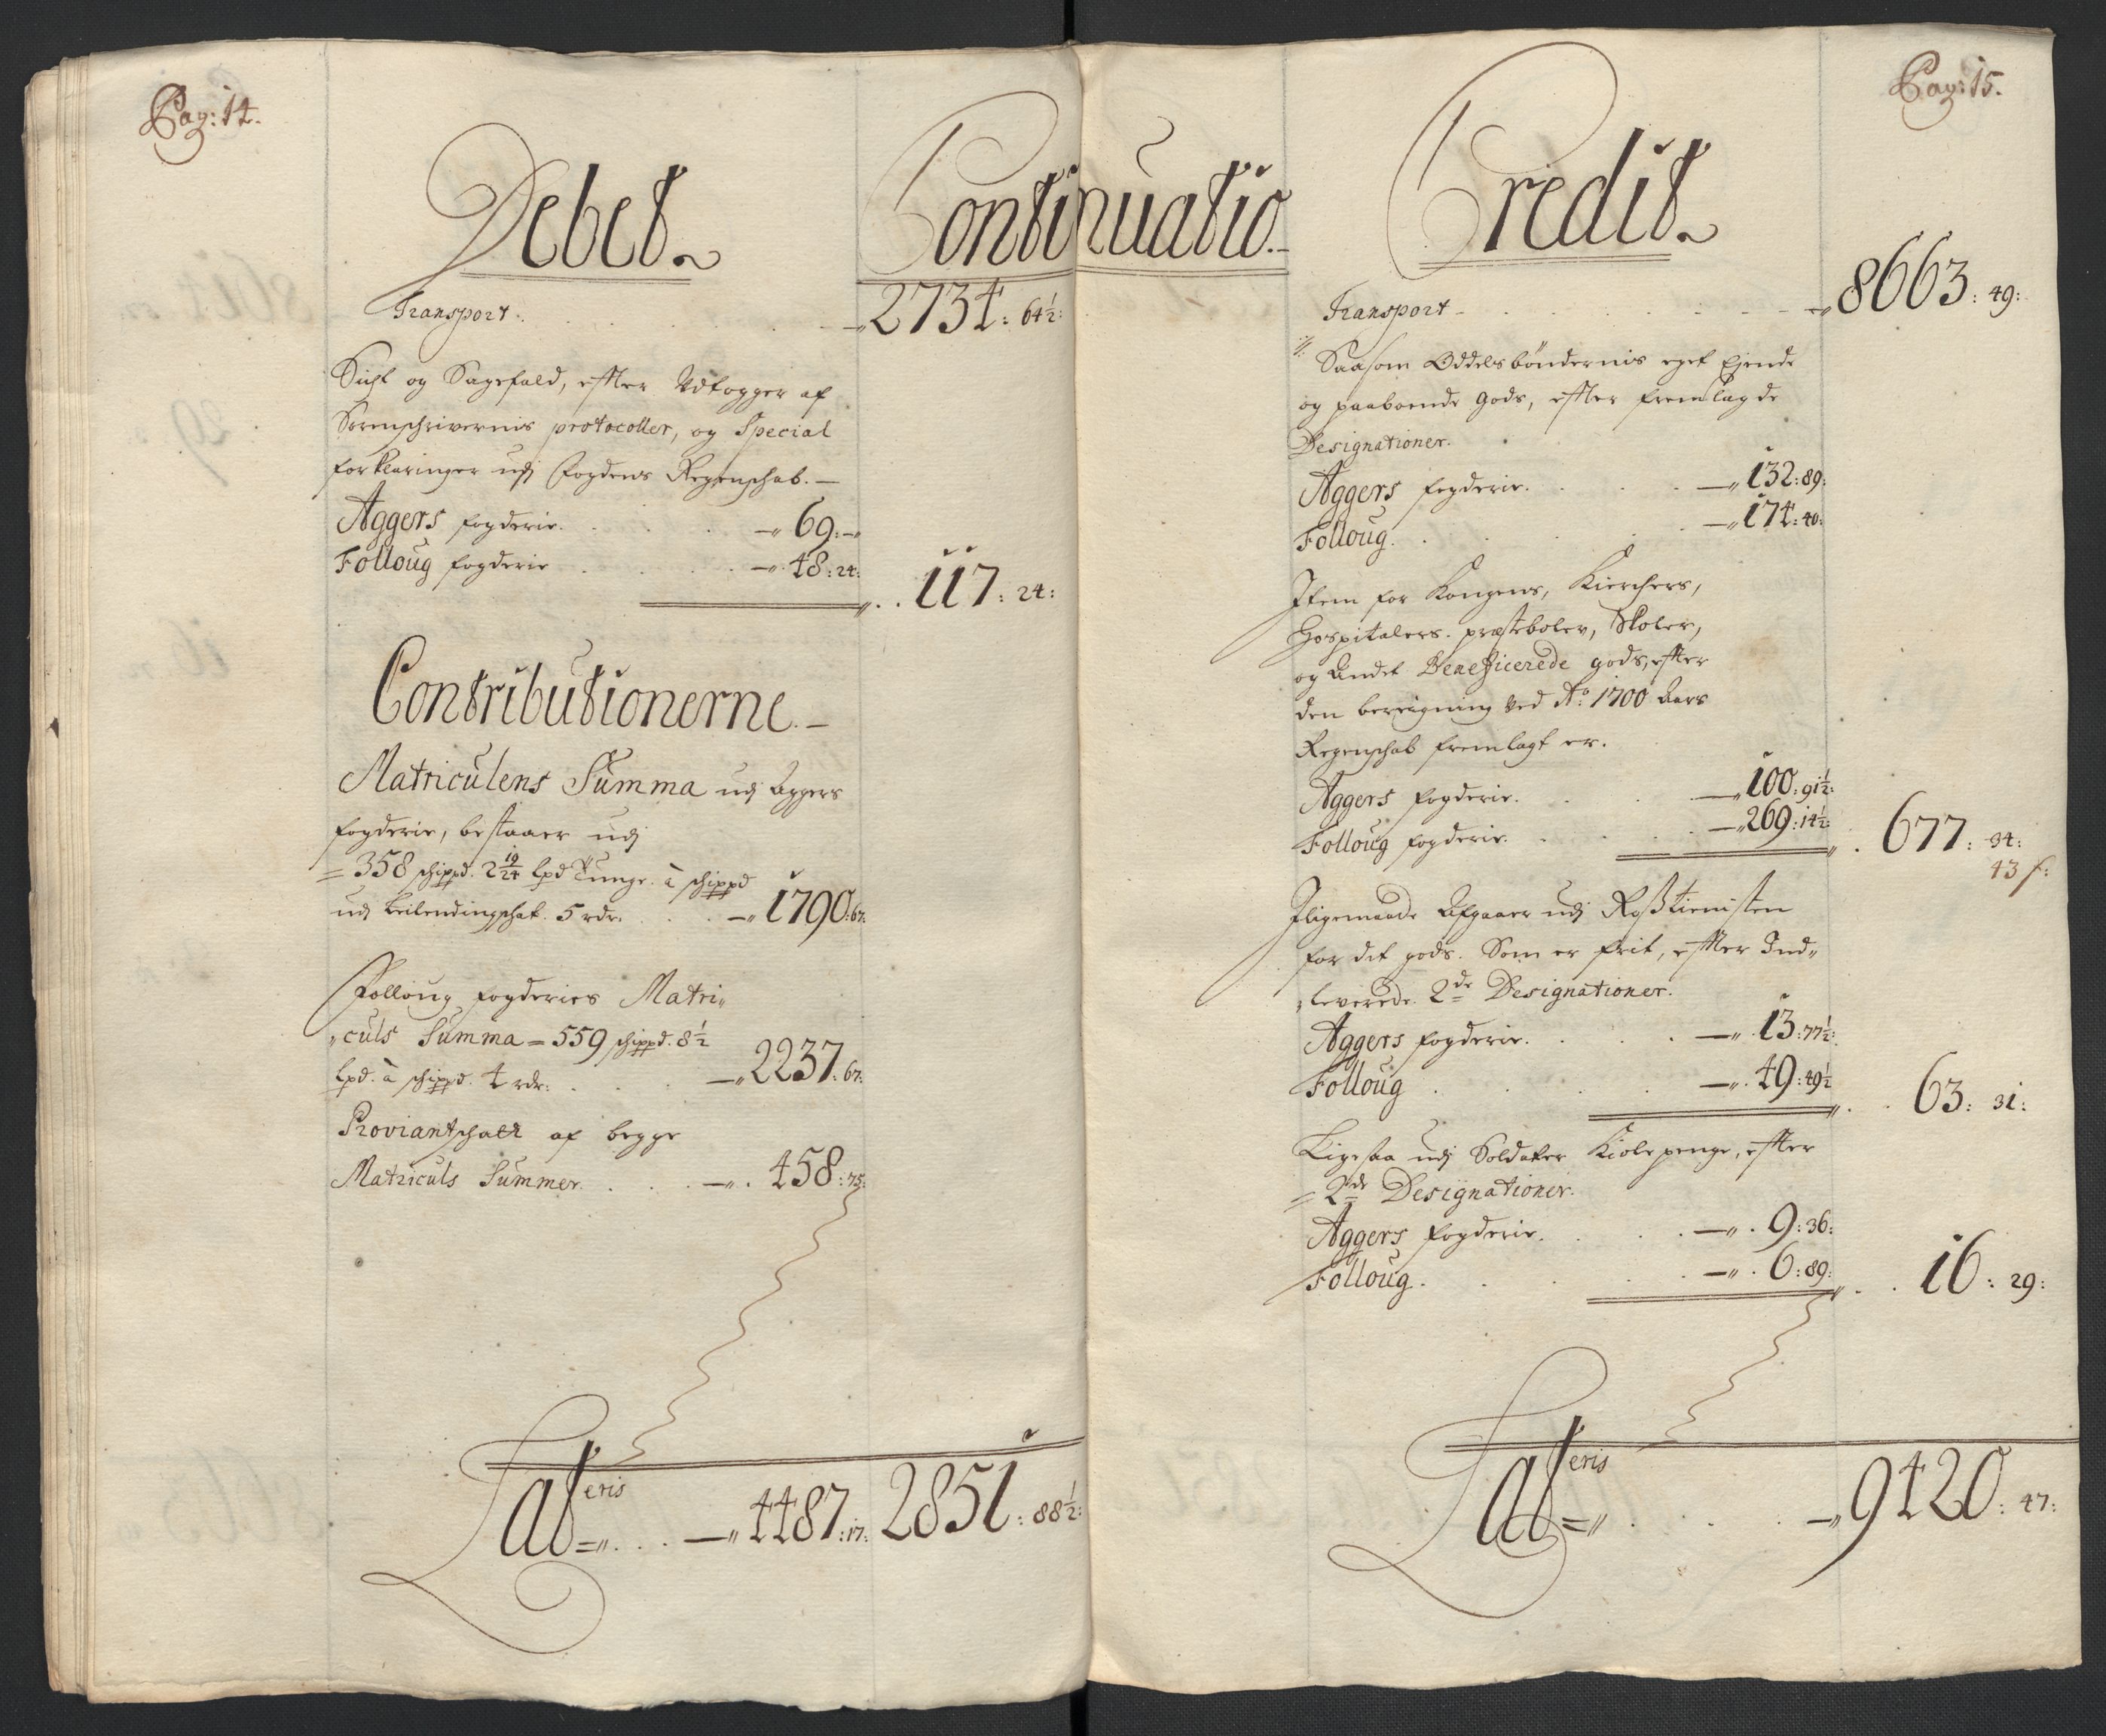 Pag: 14.
Debet
Continuatio.
Transport. 2734: 64½:
Sicht og Sagefald, effter Udtogger af
Sorenschrivernis protocoller, og Special
forklaringer udj Fogdens Regenschab.
Aggers fogderie. 69:-
Folloug fogderie 48: 24:
117: 24:
Contributionerne.
Matriculens Summa udj Aggers
fogderie, bestaaer udj
= 358 schippd. 2 19/24 lpd Tunge. à schippd
udj Leilendingschat. 5 rdr. 1790: 67:
Folloug fogderies Matri„
„culs Summa = 559 schippd. 8½
lpd. à schippd. 4 rdr: 2237: 67:
Proviantschatt af begge
Matriculs Summer. 458: 75:
Lateris 4487: 17: 2851: 88½:
Pag: 15.
Credit
Transport 8663: 49:
Saasom Oddelsbøndernis eget Ejende
og paaboende Gods, effter fremlagde
Designationer.
Aggers fogderie. 132: 89:
Folloug. 174: 40:
Item for Kongens, Kierchers,
Hospitalers. præstebolen, Skoler,
og Andet Beneficerede gods, effter
den beregning Ved Ao: 1700 Aars
Regenschab fremlagt er.
Aggers fogderie. 100: 91½:
Folloug fogderie. 269: 14½:
677: 34:
43 f:
Iligemaade Afgaaer udj Rosstienisten
for det gods. Som er frit, effter Ind„
„leverede. 2de Designationer.
Aggers fogderie. 13: 77½:
Folloug 49: 49½
63: 31:
Ligesaa udj Soldater Kiolepenge, effter
= 2de Designationer.
Aggers fogderie. 9: 36:
Folloug. 6: 89:
16: 29:
Lateris 9420: 47: